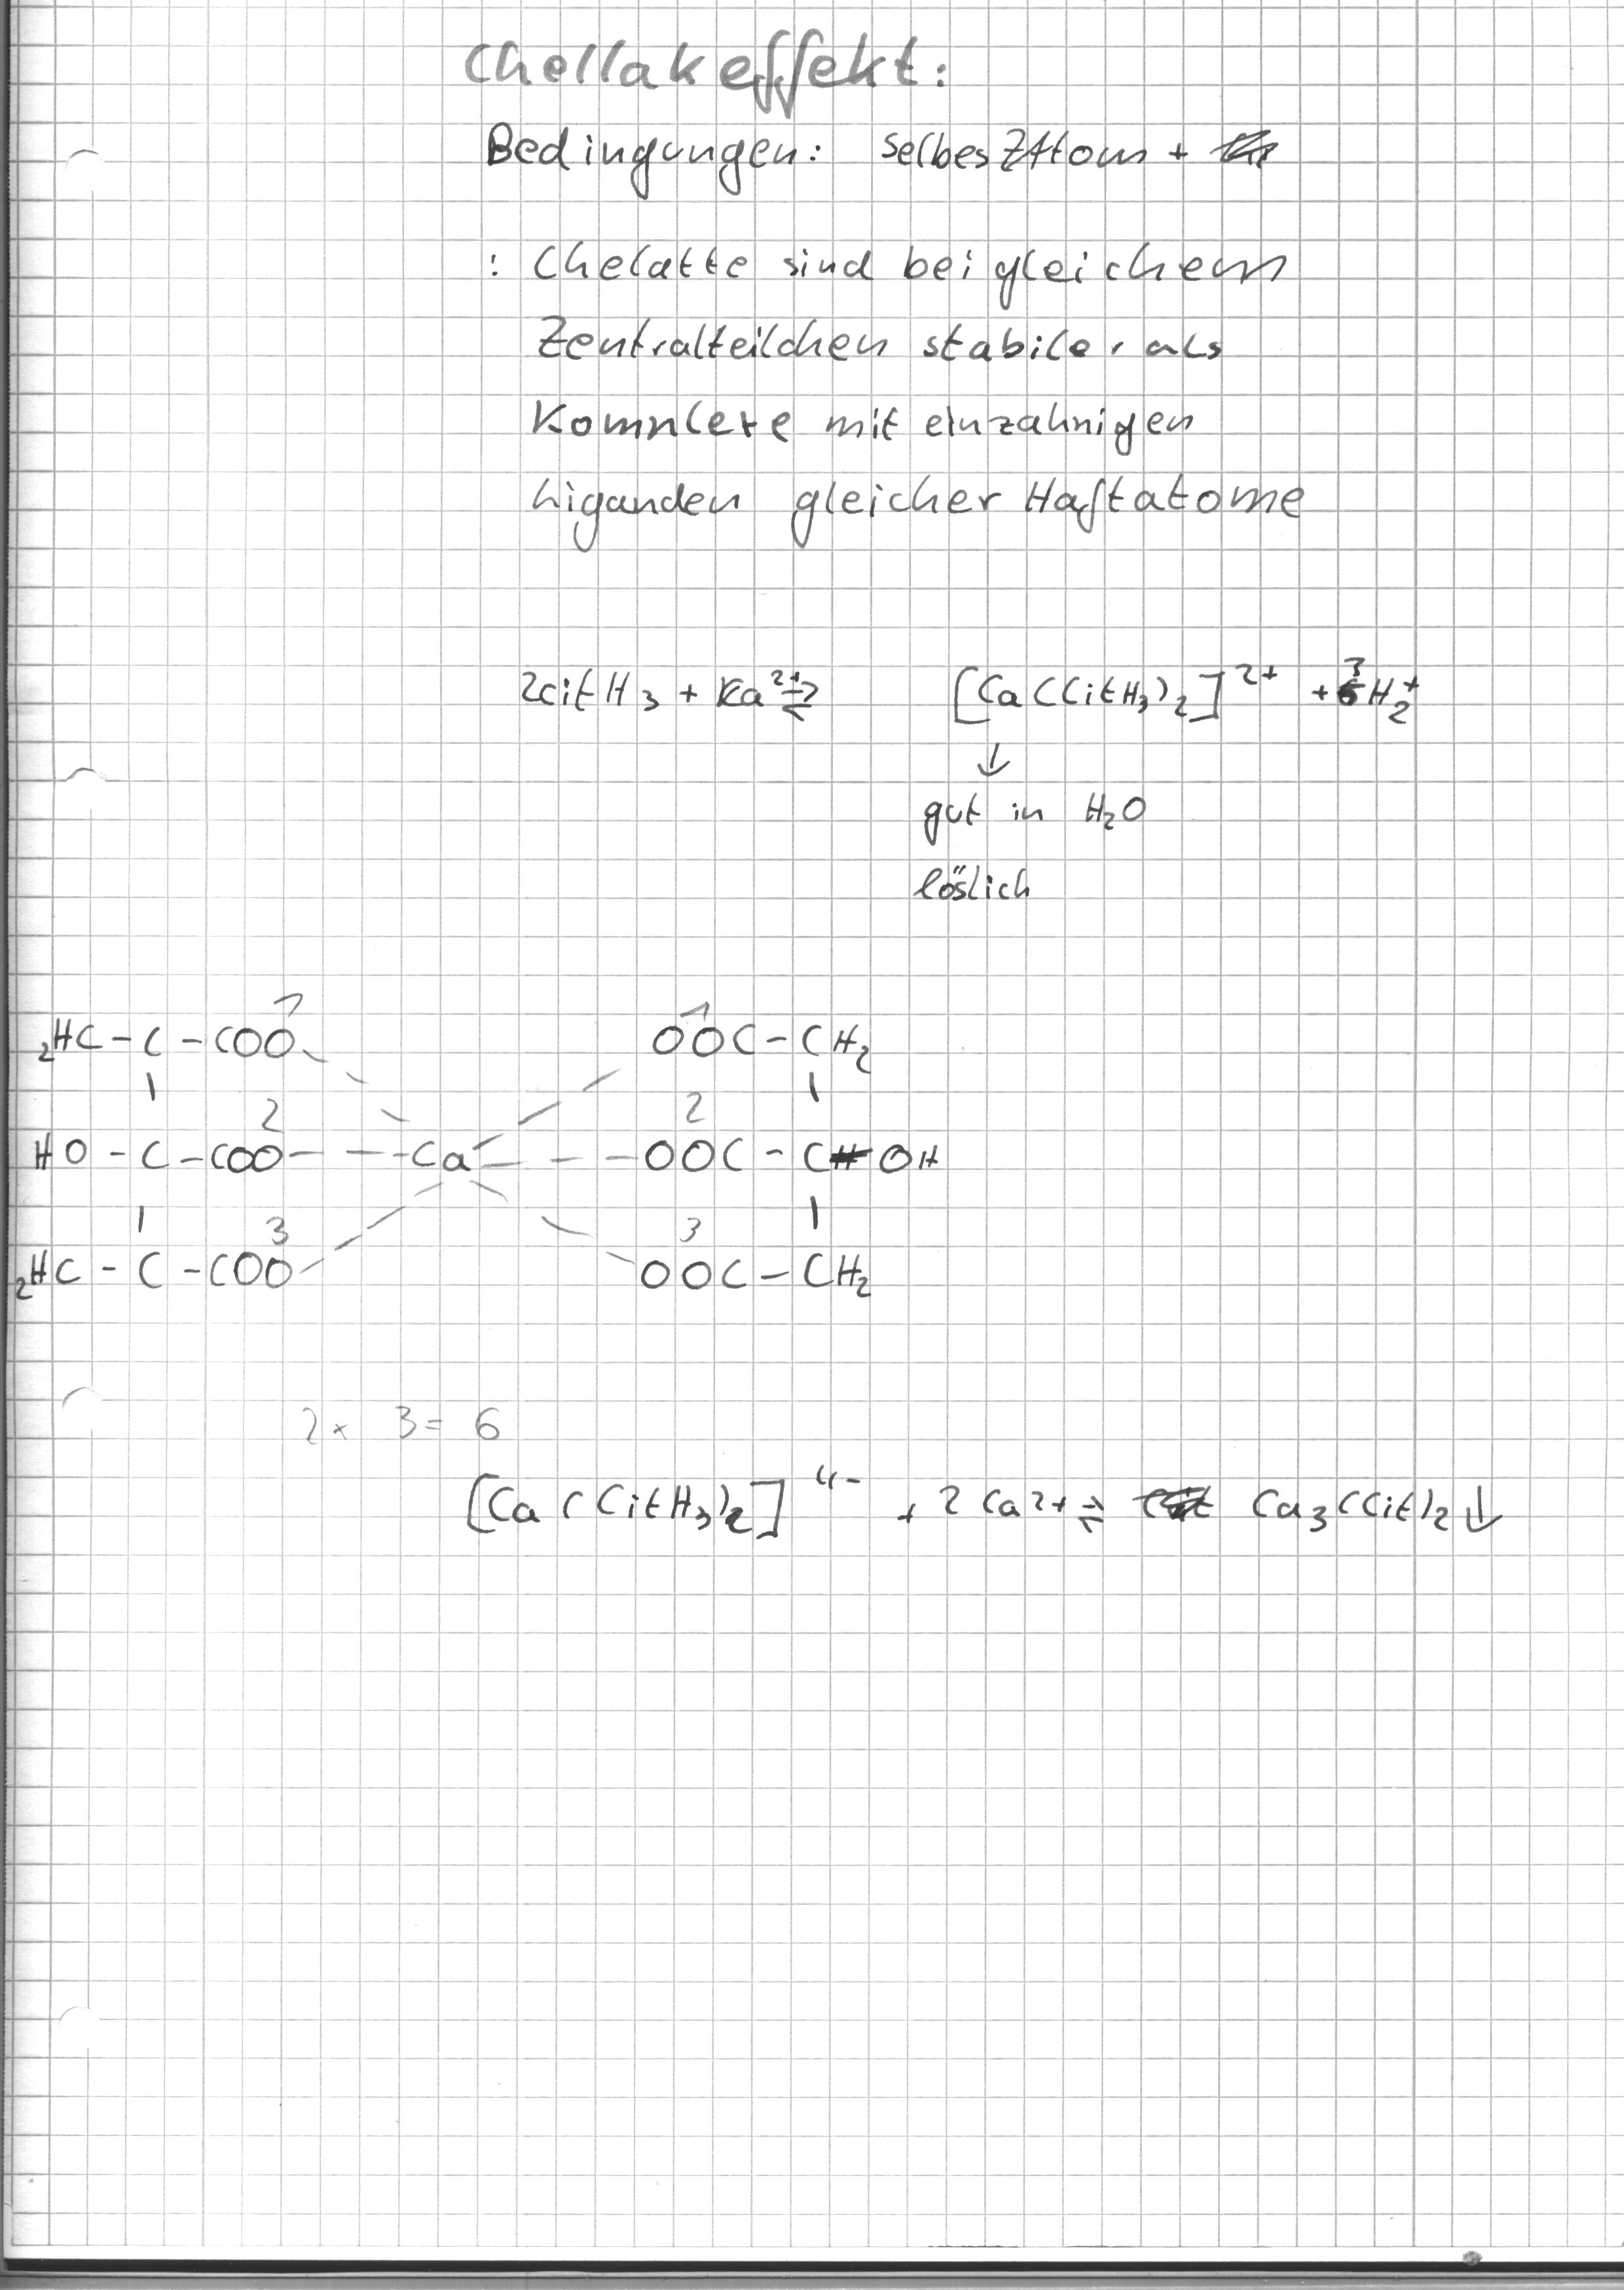 Chellakeffekt:
Bedingungen: selbes ZAtom +
: Chelatte sind bei gleichem
Zentralteilchen stabiler als
Komplexe mit einzahnigen
Liganden gleicher Haftatome
2citH3 + Ca2+ ⇌ [Ca(CitH3)2]2+ + 3H2+
↓
gut in H2O
löslich
1 1
2HC - C - COO OOC - CH2
2 2
HO - C - COO - - - Ca - - - OOC - C OH
3 3
2HC - C - COO OOC - CH2
2 x 3 = 6
[Ca(CitH3)2]4- + 2Ca2+ ⇌ Ca3(Cit)2↓